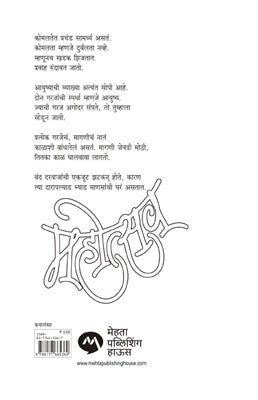 कोमलतेत प्रचंड सामर्थ्य असतं.
कोमलता म्हणजे दुर्बलता नव्हे.
म्हणूनच खडक झिजतात.
प्रवाह रुंदावत जातो.
आयुष्याची व्याख्या अत्यंत सोपी आहे.
दोन गरजांची स्पर्धा म्हणजे आयुष्य.
ज्याची गरज अगोदर संपते, तो तुम्हाला
सोडून जातो.
प्रत्येक गरजेचं, मागणीचं नातं
काळाशी बांधलेलं असतं. मागणी जेवढी मोठी,
तितका काळ थांबावा लागतो.
बंद दरवाजांची एकजूट झटकन् होते, कारण
त्या दारापल्याड भ्याड माणसांची घरं असतात.
महोत्सव
कथासंग्रह
₹ 150
मेहता
पब्लिशिंग
हाऊस
www.mehtapublishinghouse.com